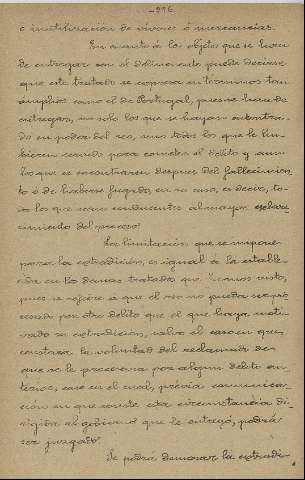 -216
é inutilización de víveres ó mercancías.
En cuanto á los objetos que se hacen
de entregar con el delincuente puede decirse
que este tratado se expresa en términos tan
ámplios como el de Portugal, pues se han de
entregar, no sólo los que se hayan encontra-
do en poder del reo, sino todos los que le hu-
bieren servido para cometer el delito y aun
los que se encontraren despues del fallecimien-
to ó de haberse fugado, en su caso, es decir, to-
dos los que sean conducentes al mayor esclare-
cimiento del proceso.
La limitación que se impone
para la extradición, es igual á la estable-
cida en los demas tratados que hemos visto,
pues se refiere á que el reo no pueda ser pro
cesado por otro delito que el que haya moti-
vado su extradición, salvo el caso en que
constara la voluntad del reclamado de
que se le procesara por algun delito an-
terior, caso en el cual, prévia comunica-
ción en que conste esta circunstancia di-
rigida al gobierno que le entregó, podrá
ser juzgado.
Se podrá demorar la extradi-